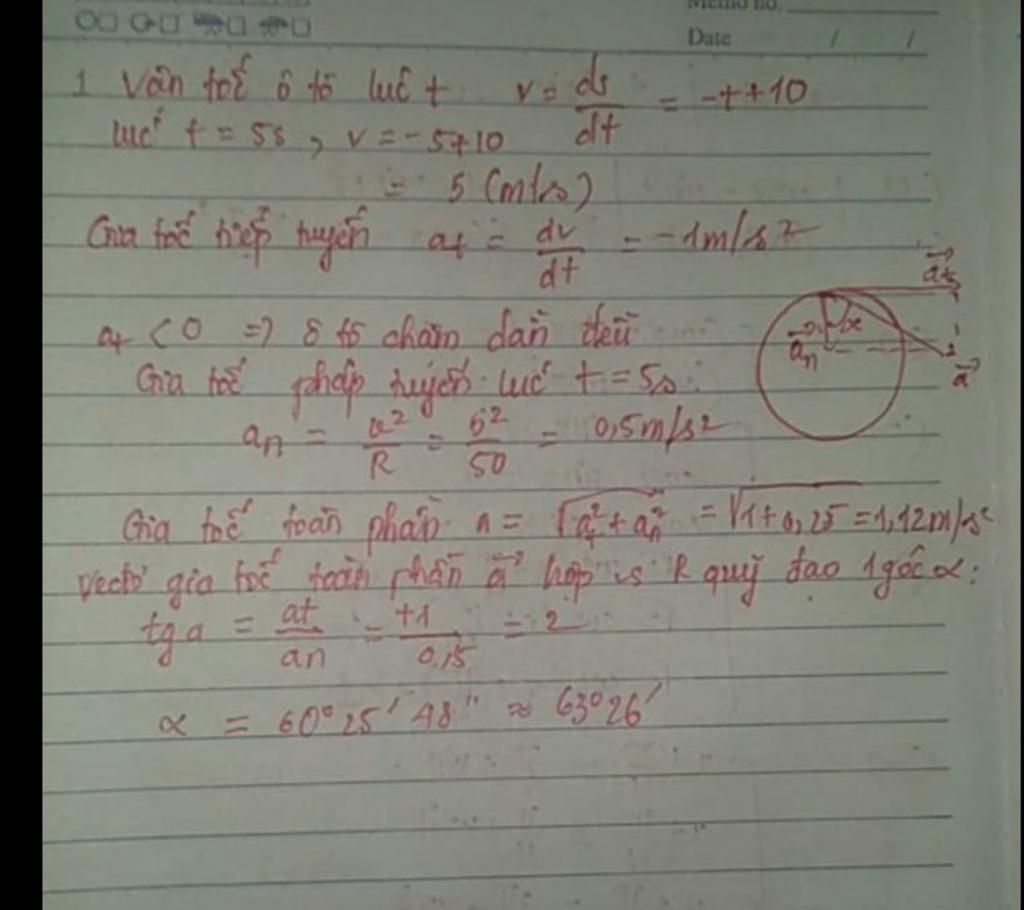 Memo no.
Date / /
1 Vân tốc ô tô lúc t v = ds/dt = -t+10
lúc t = 5s, v = -5+10
= 5 (m/s)
Gia tốc tiếp tuyến at = dv/dt = -1m/s2
at < 0 => ô tô châm dần đều
at
x
an
a
Gia tốc pháp tuyến lúc t = 5s.
an = v²/R = 5²/50 = 0,5m/s2
Gia tốc toàn phần a = √at²+an² = √1+0,25 = 1,12m/s²
vectơ gia tốc toàn phần a hợp vs R quỹ đạo 1 góc α:
tg a = at/an = +1/0,5 = 2
α = 60°25'48" ≈ 63°26'